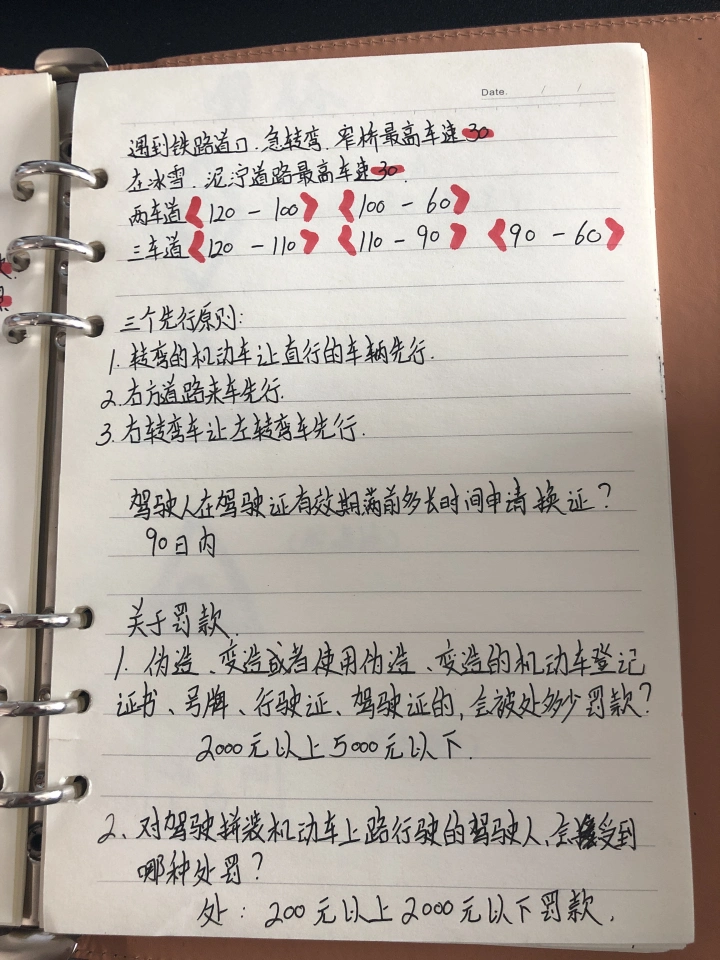 Date. / /
遇到铁路道口、急转弯、窄桥最高车速30
在冰雪、泥泞道路最高车速30.
两车道《120-100》《100-60》
三车道《120-110》《110-90》《90-60》
三个先行原则:
1. 转弯的机动车让直行的车辆先行.
2. 右方道路来车先行.
3. 右转弯车让左转弯车先行.
驾驶人在驾驶证有效期满前多长时间申请换证?
90日内
关于罚款.
1. 伪造、变造或者使用伪造、变造的机动车登记
证书、号牌、行驶证、驾驶证的,会被处多少罚款?
2000元以上5000元以下.
2、对驾驶拼装机动车上路行驶的驾驶人,会受到
哪种处罚?
处:200元以上2000元以下罚款.